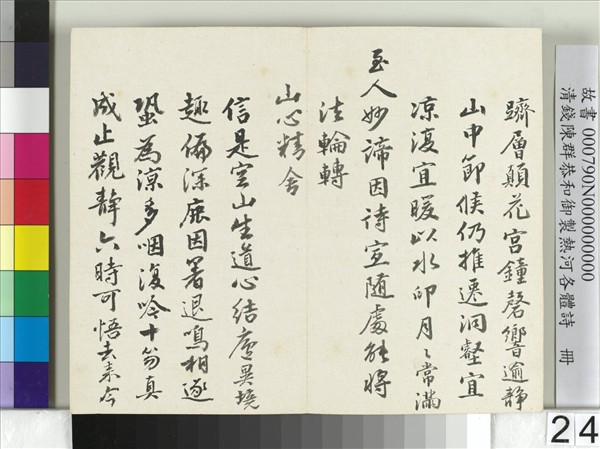 躋層顛花宮鐘磬響逾静
山中節候仍推遷洞壑宜
凉復宜暖以水印月〻常滿
至人妙諦因詩宣随處能將
法輪轉
山心精舍
信是空山生道心結廬異境
趣偏深鹿因暑退鳴相逐
蛩為凉多咽復吟十笏真
成止觀静六時可悟去来今
故書 000790N000000000
清錢陳群恭和御製熱河各體詩 冊
24